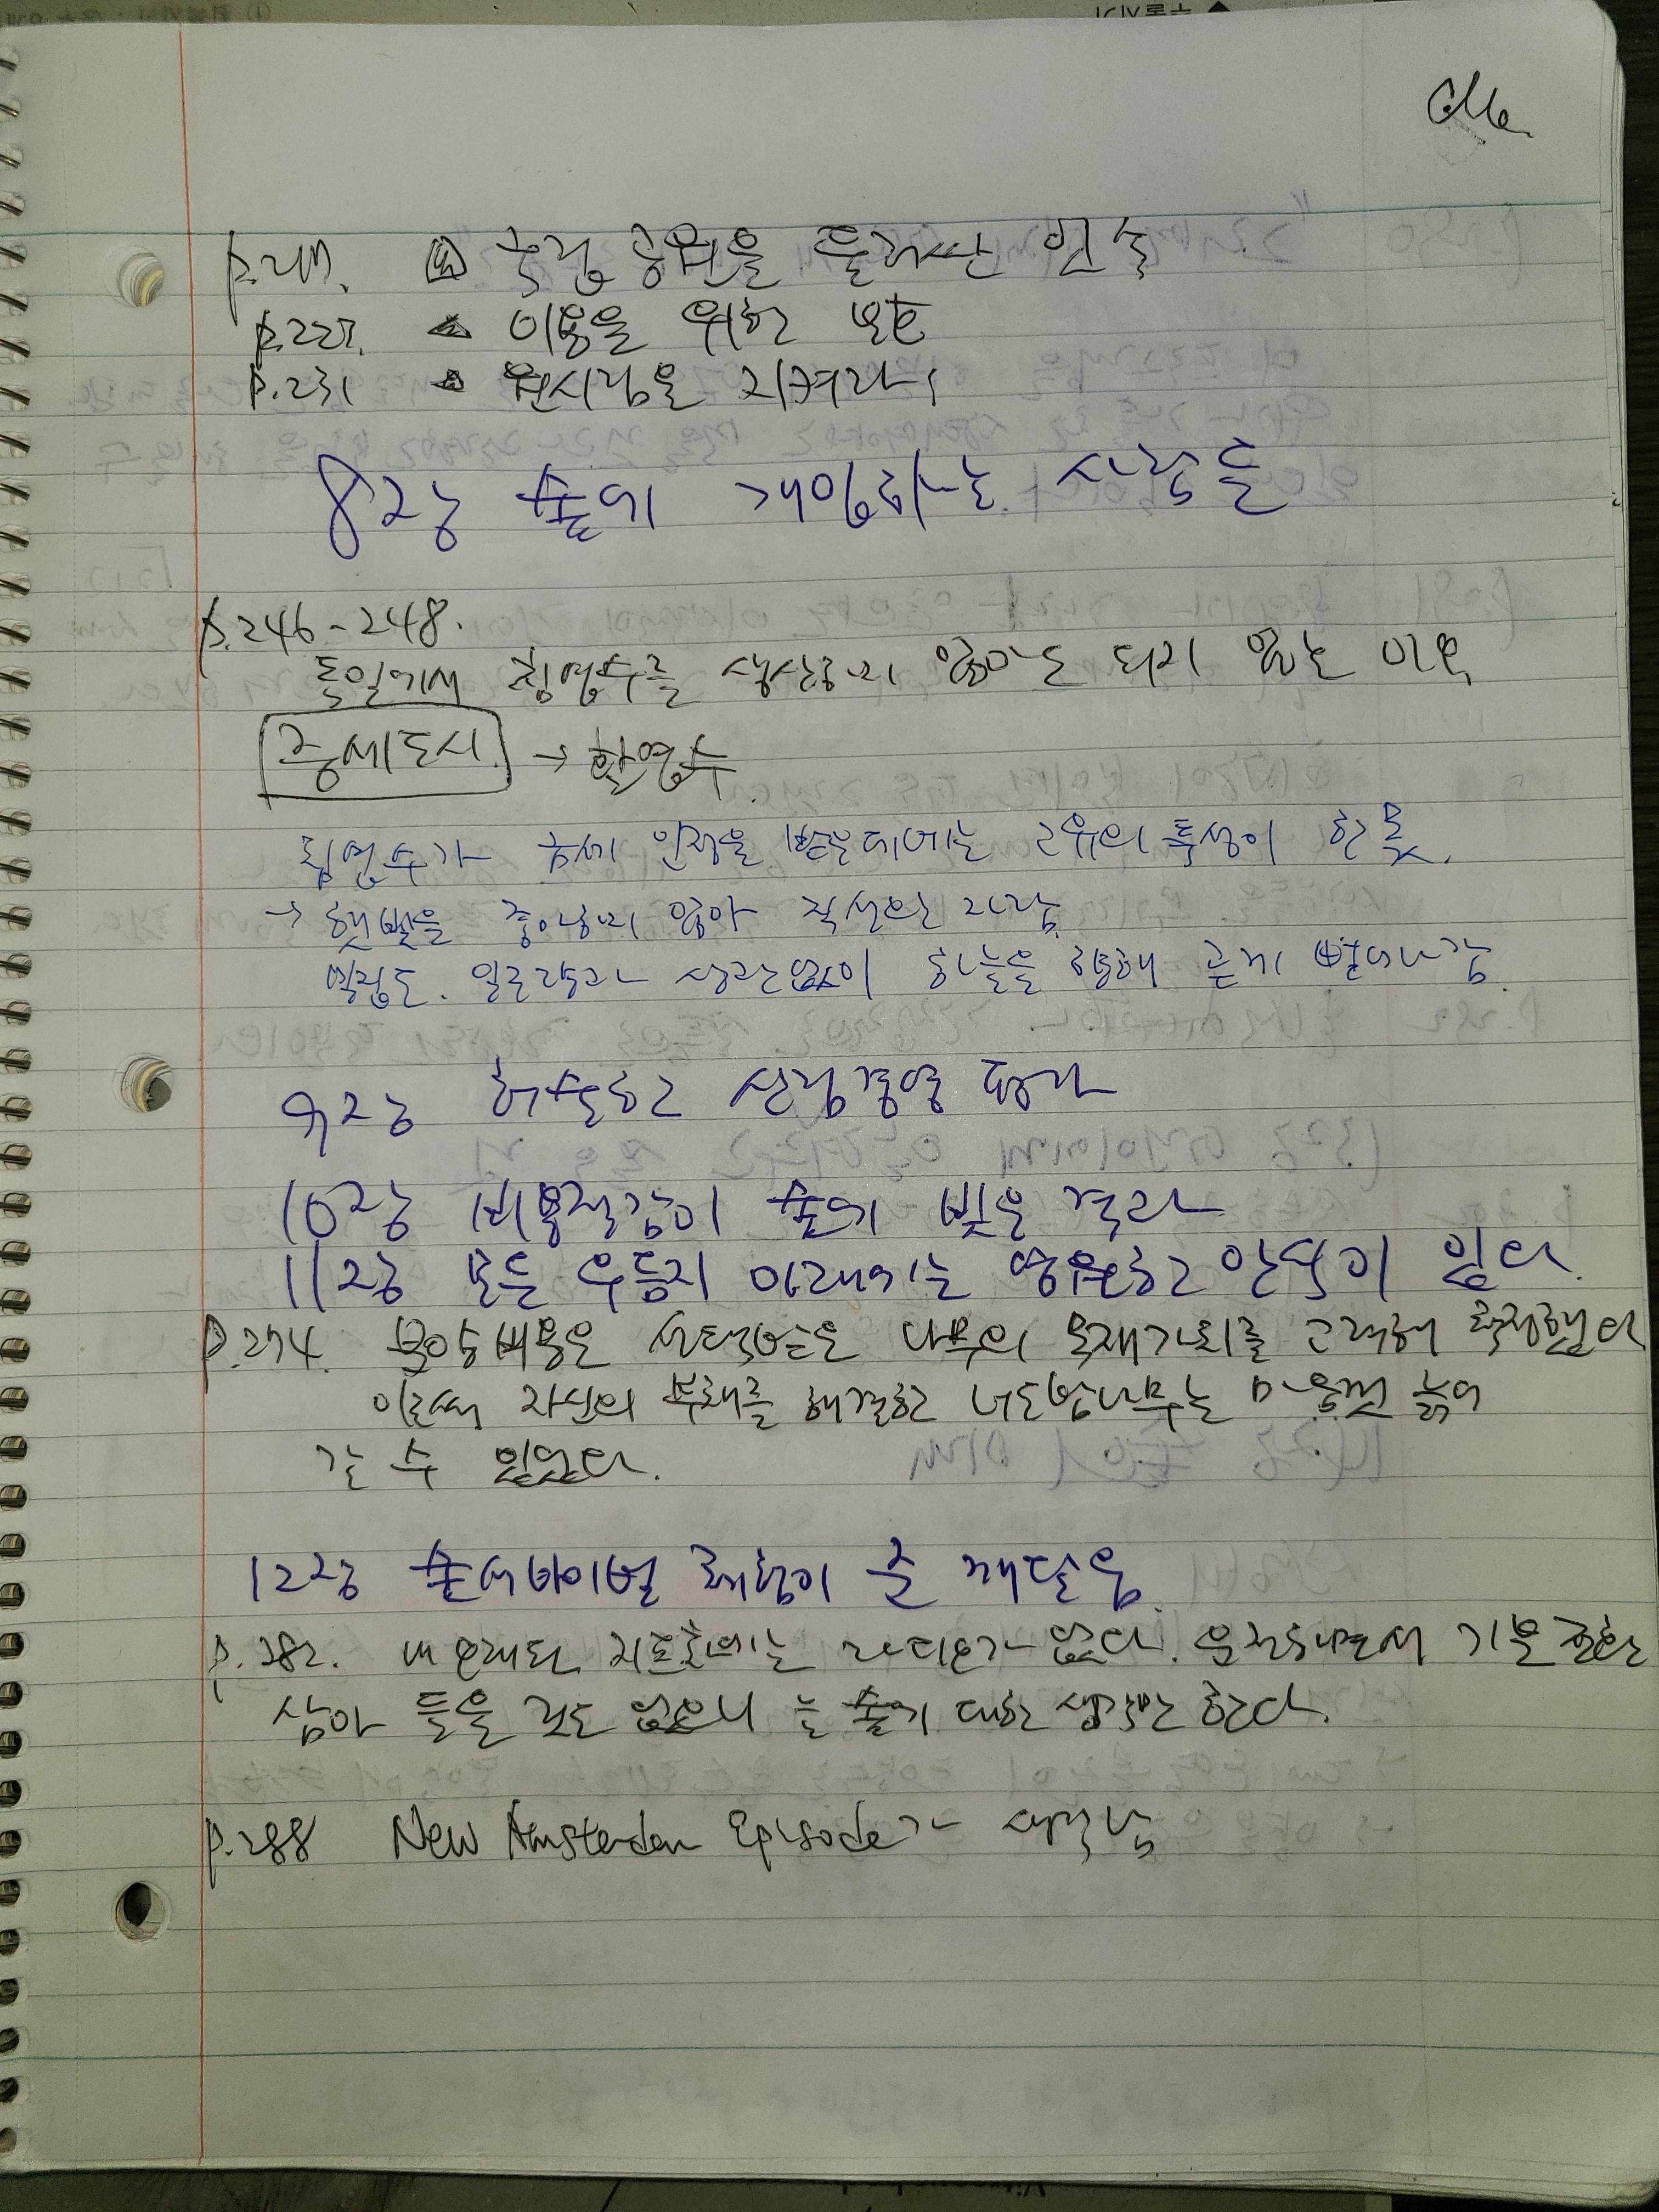 국립공원을 둘러싼
p.227. 이용을 위한 보호
p.231 원시림을 지켜라
8장 숲에 개입하는 사람들
p.246-248.
독일에서 침엽수를 생산하지 않아도 되지 않는 이유
중세도시 → 활엽수
침엽수가 인정을 받은데에는 고유의 특성이 한 몫.
→ 햇빛을 좋아하지 않아 직선으로 자람
일조량과 상관없이 하늘을 향해 곧게 뻗어나감
9장 허술한 산림경영 평가
10장 비용절감이 숲에 빚은 결과
11장 모든 우듬지 아래에는 영원한 안식이 있다.
p.274. 비용은 선택받은 나무의 목재가치를 고려해 책정했다
이로써 자신의 부채를 해결한 너도밤나무는 마음껏 늙어
갈 수 있었다.
12장 숲 서바이벌 체험이 준 깨달음
p.282. 내 오래된 지프차에는 라디오가 없다. 운전하면서 기분전환
삼아 들을 것도 없으니 늘 숲에 대한 생각만 한다.
p.288 New Amsterdam Episode가 생각남